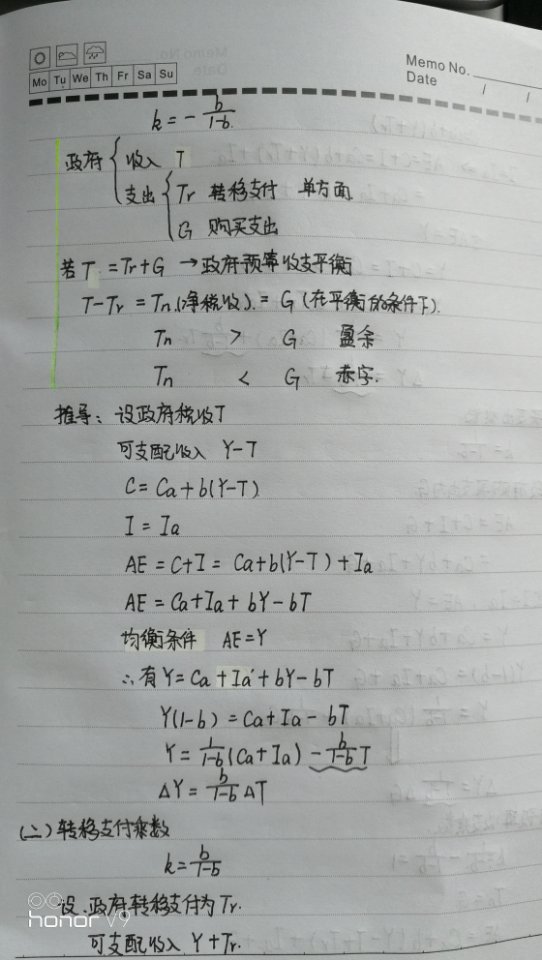 Memo No.
Date / /
Mo Tu We Th Fr Sa Su
k = - b/1-b
政府 { 收入 T
支出 { Tr 转移支付 单方面
G 购买支出
若T = Tr+G → 政府预算收支平衡
T-Tr = Tn(净税收) = G (在平衡的条件下).
Tn > G 盈余
Tn < G 赤字.
推导: 设政府税收T
可支配收入 Y-T
C = Ca+b(Y-T)
I = Ia
AE = C+I = Ca+b(Y-T)+Ia
AE = Ca+Ia+bY-bT
均衡条件 AE=Y
∴有Y=Ca+Ia+bY-bT
Y(1-b) = Ca+Ia-bT
Y = 1/1-b (Ca+Ia) - b/1-b T
ΔY = b/1-b ΔT
(二) 转移支付乘数
k = b/1-b
设:政府转移支付为Tr.
可支配收入 Y+Tr.
honor V9